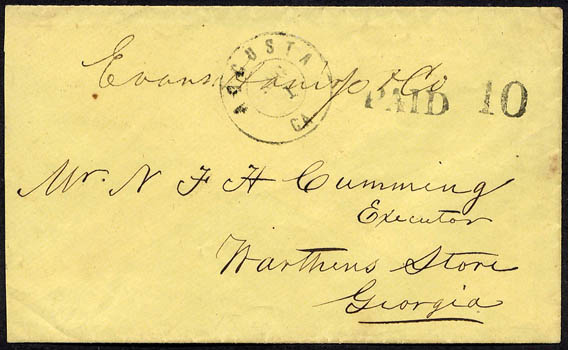 Evans, Harris & Co
AUGUSTA
GA
PAID 10
Mr. N F H Cumming
Executor
Warthens Store
Georgia